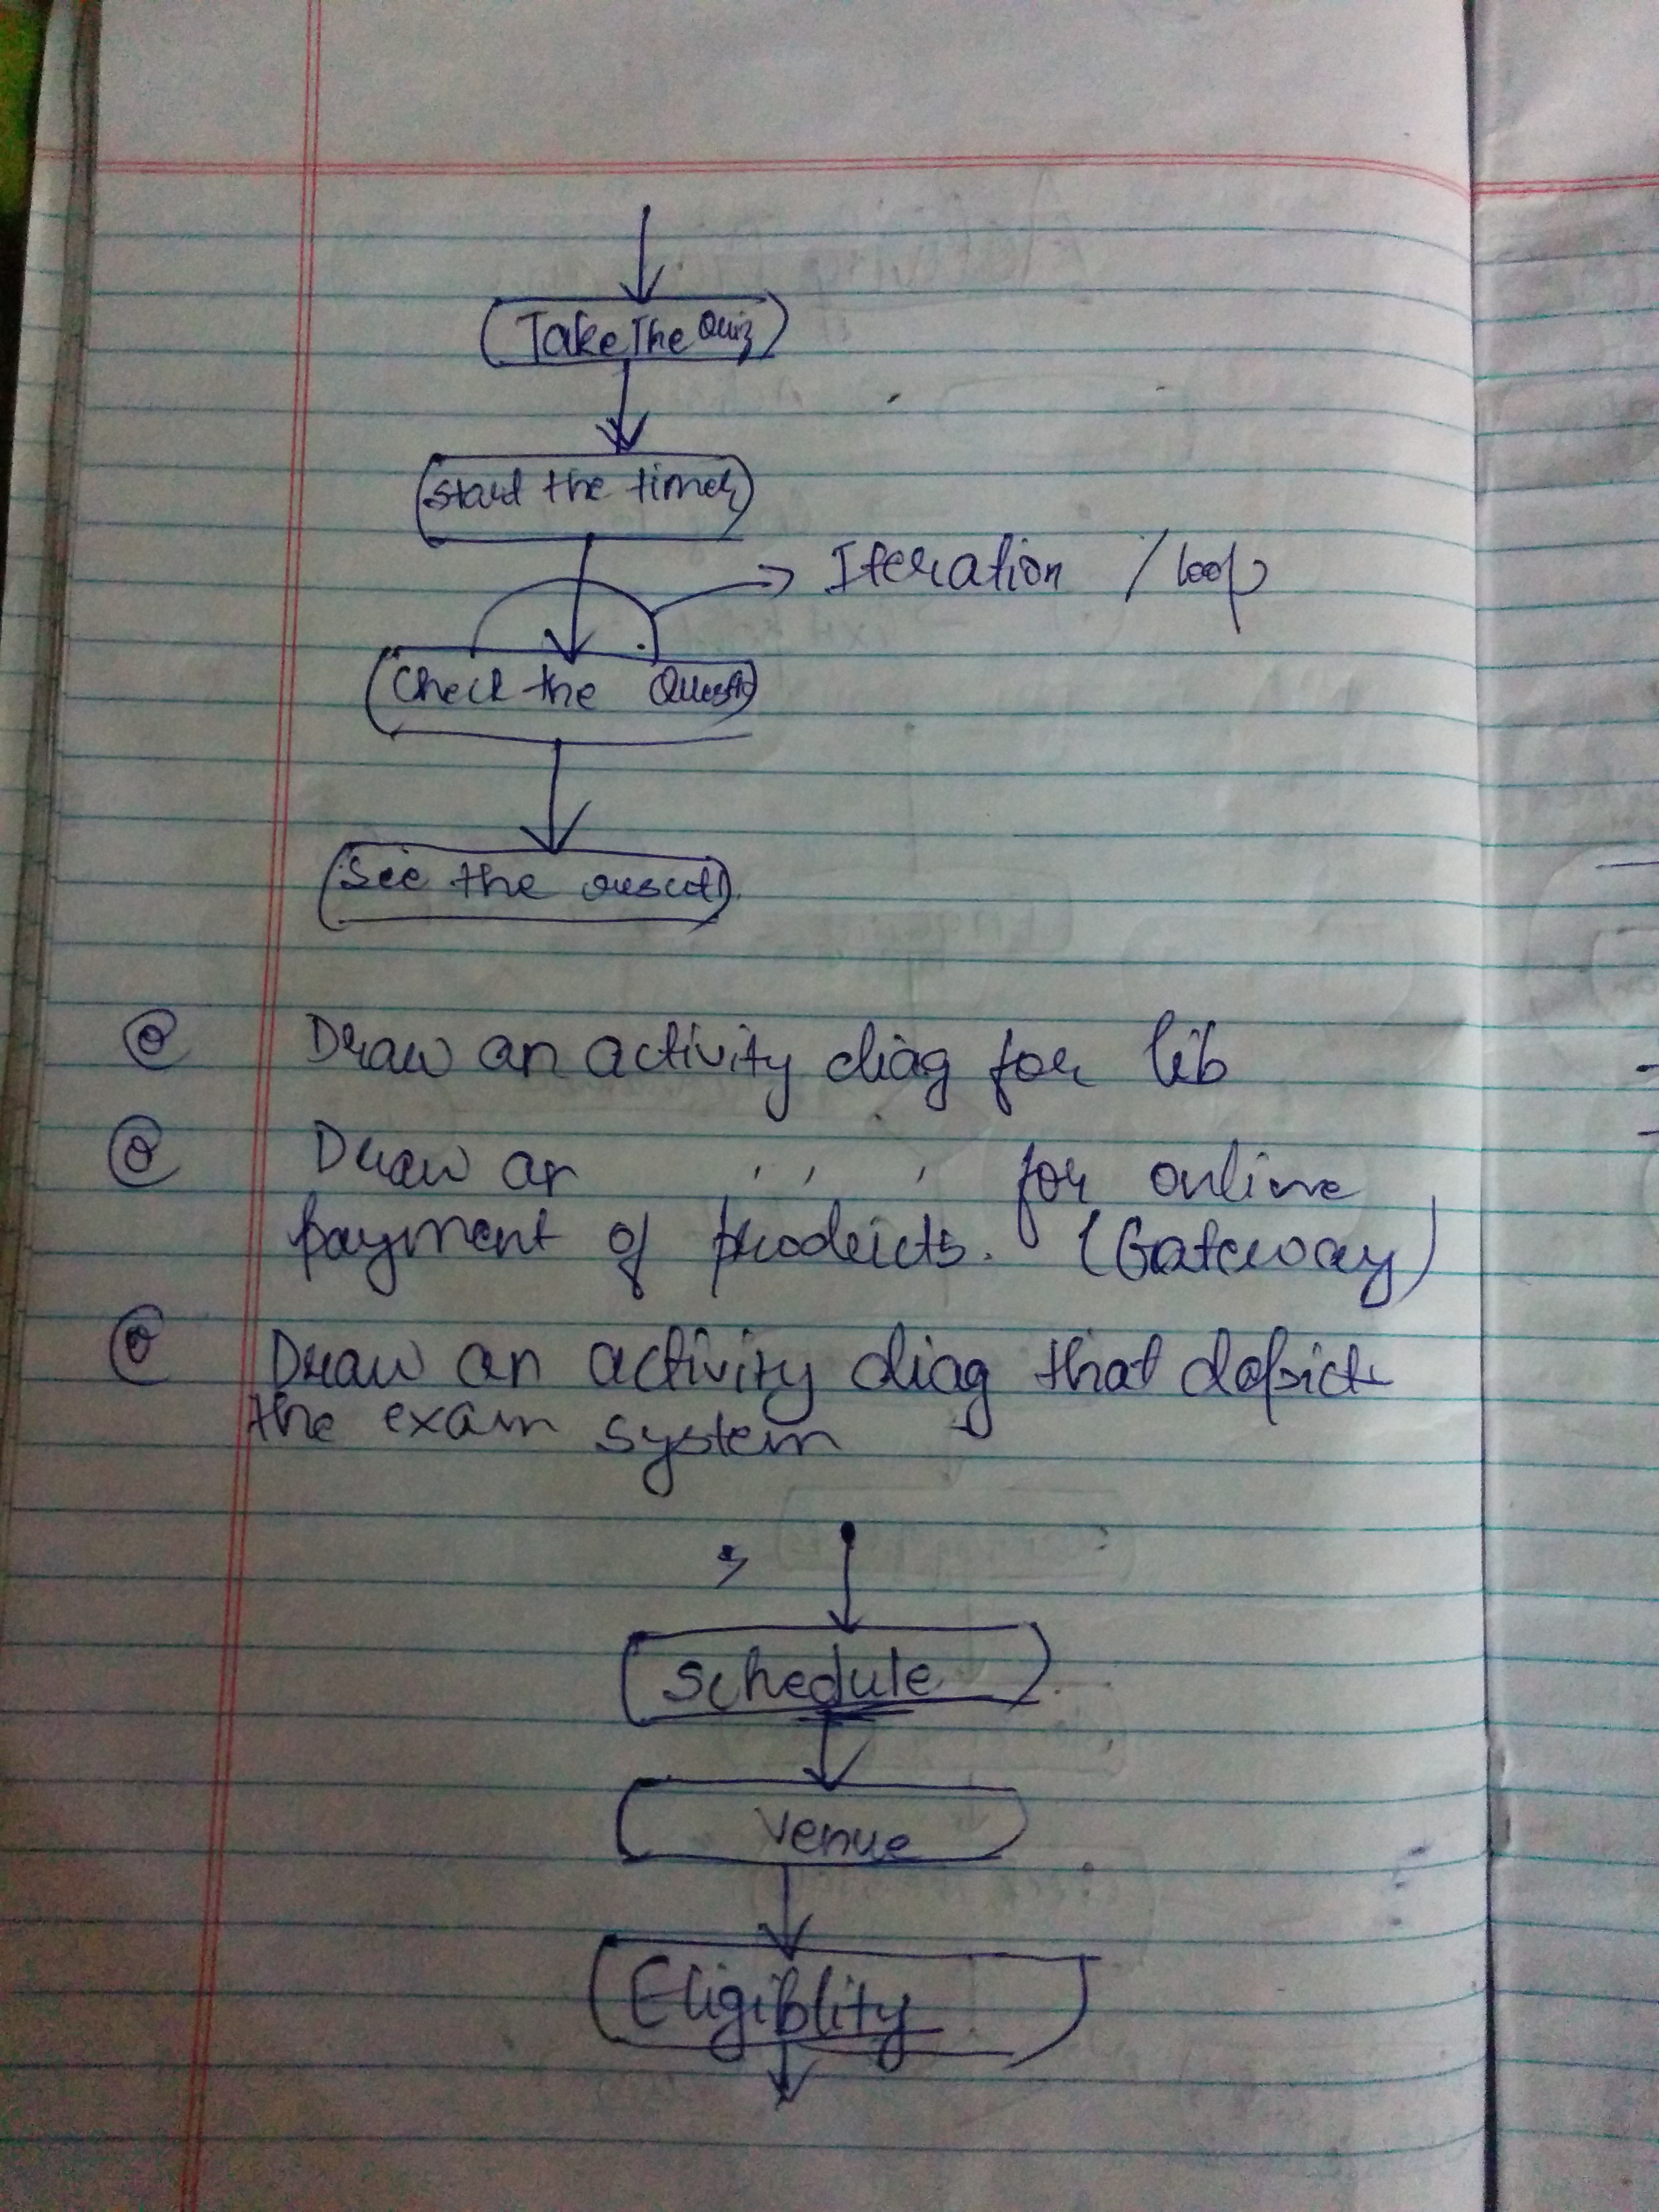 Take The Quiz
start the timer
Iteration / loop
Check the Quest
See the result
Draw an activity diag for lib
Draw an , , , for online
payment of products. (Gateway)
Draw an activity diag that depicts
the exam system
Schedule
Venue
Eligiblity